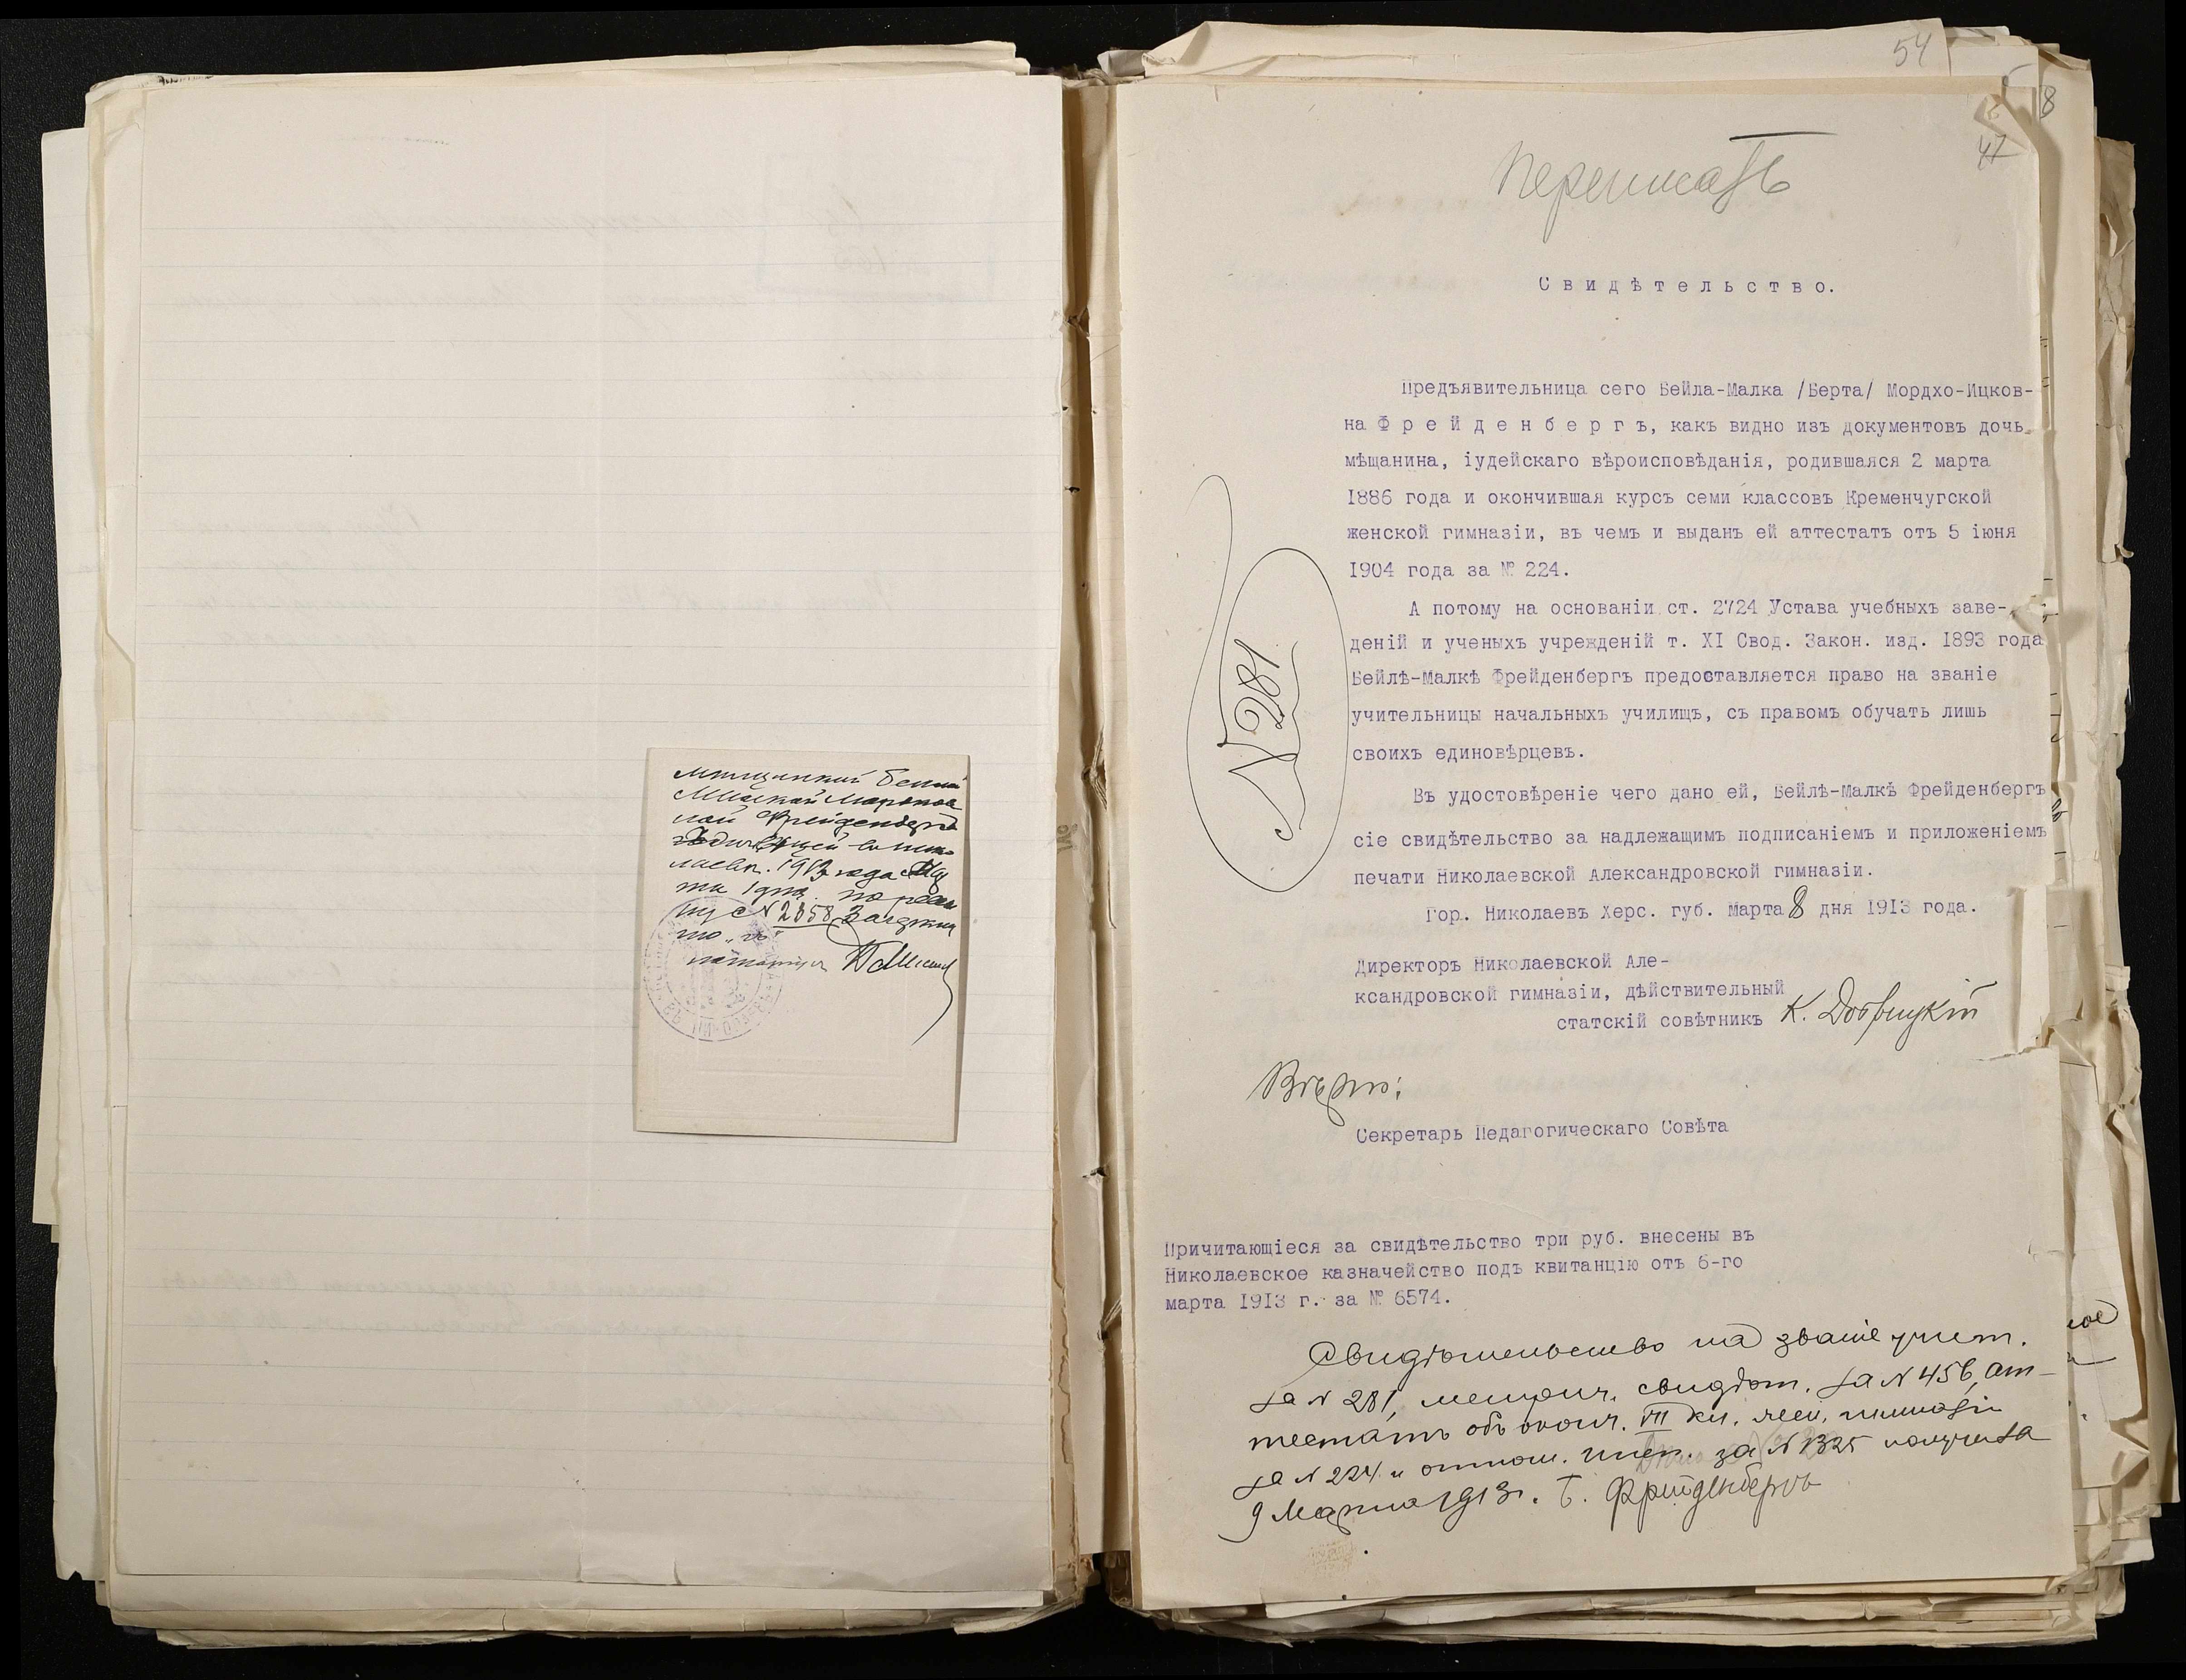 мѣщанкой Бейлой
Малкой Мордков
ной Фрейденбергъ
въ Нико
лаевѣ. 1913 года Мар
та 1 дня. по реест
ру № 2858
нотаріусъ
54
8
47
Переписать
Свидѣтельство.
Предъявительница сего Бейла-Малка /Берта/ Мордхо-Ицков-
на Фрейденбергъ, какъ видно изъ документовъ дочь
мѣщанина, іудейскаго вѣроисповѣданія, родившаяся 2 марта
1886 года и окончившая курсъ семи классовъ Кременчугской
женской гимназіи, въ чемъ и выданъ ей аттестатъ отъ 5 іюня
1904 года за № 224.
А потому на основаніи ст. 2724 Устава учебныхъ заве-
деній и ученыхъ учрежденій т. XI Свод. Закон. изд. 1893 года
Бейлѣ-Малкѣ Фрейденбергъ предоставляется право на званіе
учительницы начальныхъ училищъ, съ правомъ обучать лишь
своихъ единовѣрцевъ.
Въ удостовѣреніе чего дано ей, Бейлѣ-Малкѣ Фрейденбергъ
сіе свидѣтельство за надлежащимъ подписаніемъ и приложеніемъ
печати Николаевской Александровской гимназіи.
Гор. Николаевъ Херс. губ. Марта 8 дня 1913 года.
N 281
Директоръ Николаевской Але-
ксандровской гимназіи, дѣйствительный
статскій совѣтникъ К. Добвицкій
Вѣрно:
Секретарь Педагогическаго Совѣта
Причитающіеся за свидѣтельство три руб. внесены въ
Николаевское казначейство подъ квитанцію отъ 6-го
марта 1913 г. за № 6574.
Свидѣтельство на званіе учит.
за N 281, метрич. свидѣт. за N 456, ат-
тестатъ объ оконч. VII кл. жен. гимназіи
за N 224 и отнош. за N 1325 получила
9 Марта 1913 г. Б. Фрейденбергъ